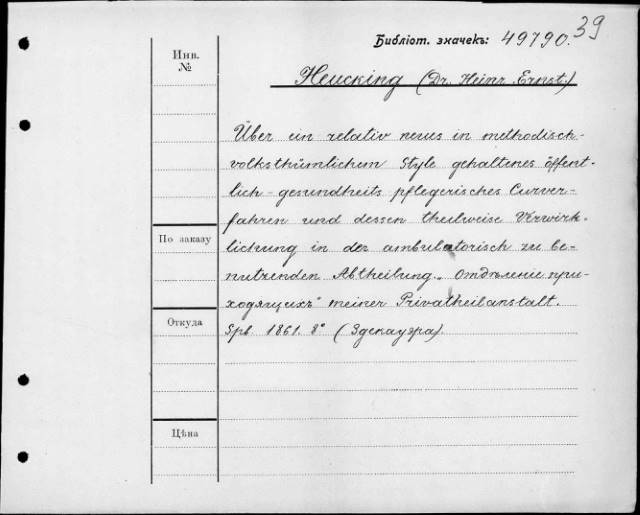 39
Библіот. значекъ: 49790.
Инв.
№
Heucking (Dr. Heinr. Ernst.)
Über ein relativ neues in methodisch-
volksthümlichem Style gehaltenes öffent-
lich-gesundheits pflegerisches Curver-
fahren und dessen theilweise Verwirk-
lichung in der ambulatorisch zu be-
nutzenden Abtheilung „Отдѣленіе при-
ходящихъ" meiner Privatheilanstalt.
Spb. 1861. 8° (Здекауэра).
По заказу
Откуда
Цѣна